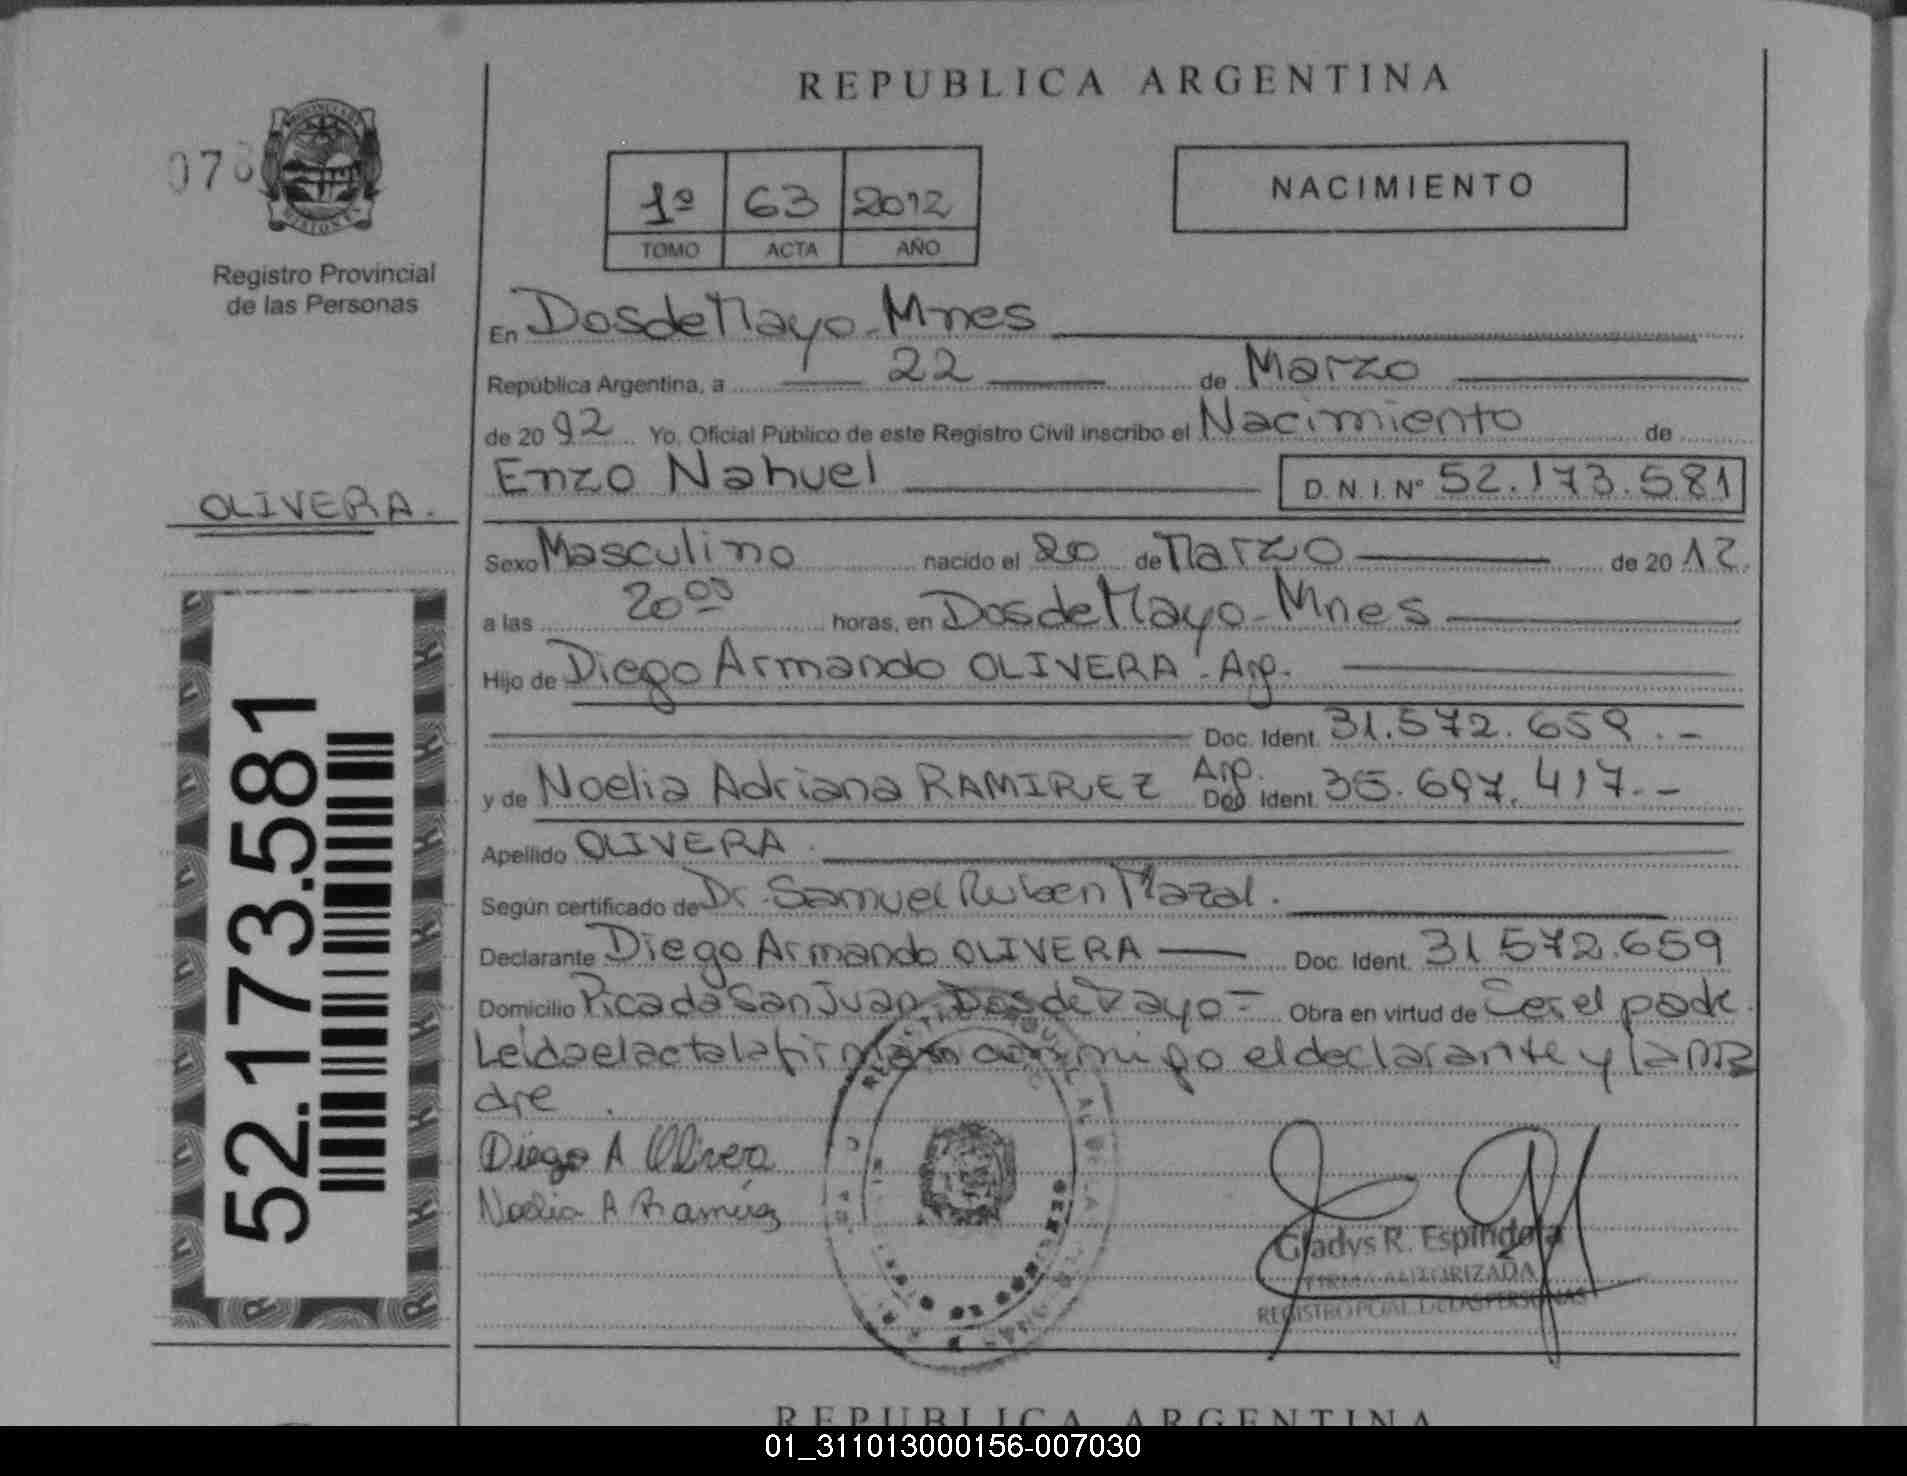 REPUBLICA ARGENTINA
1º 63 2012
TOMO ACTA AÑO
NACIMIENTO
Registro Provincial
de las Personas
En Dos de Mayo - Mnes
República Argentina, a 22 de Marzo
de 20 92 Yo, Oficial Público de este Registro Civil inscribo el Nacimiento de
Enzo Nahuel D. N. I. Nº 52.173.581
OLIVERA.
Sexo Masculino nacido el 20 de Marzo de 20 12.
a las 20 00 horas, en Dos de Mayo - Mnes
Hijo de Diego Armando OLIVERA - Arg.
Doc. Ident. 31.572.659.-
y de Noelia Adriana RAMIREZ Arg. Doc. Ident. 35.697.417.-
Apellido OLIVERA.
Según certificado de Dr. Samuel Ruben Mazal.
Declarante Diego Armando OLIVERA — Doc. Ident. 31.572.659
Domicilio Picada San Juan Dos de Mayo - Obra en virtud de Ser el padre.
Leida el acta la firman conmigo el declarante y la ma
dre.
Diego A Olivera
Noelia A Ramírez
52.173.581
Gladys R. Espindola
FIRMA AUTORIZADA
REGISTRO PCIAL. DE LAS PERSONAS
REPUBLICA ARGENTINA
01_311013000156-007030